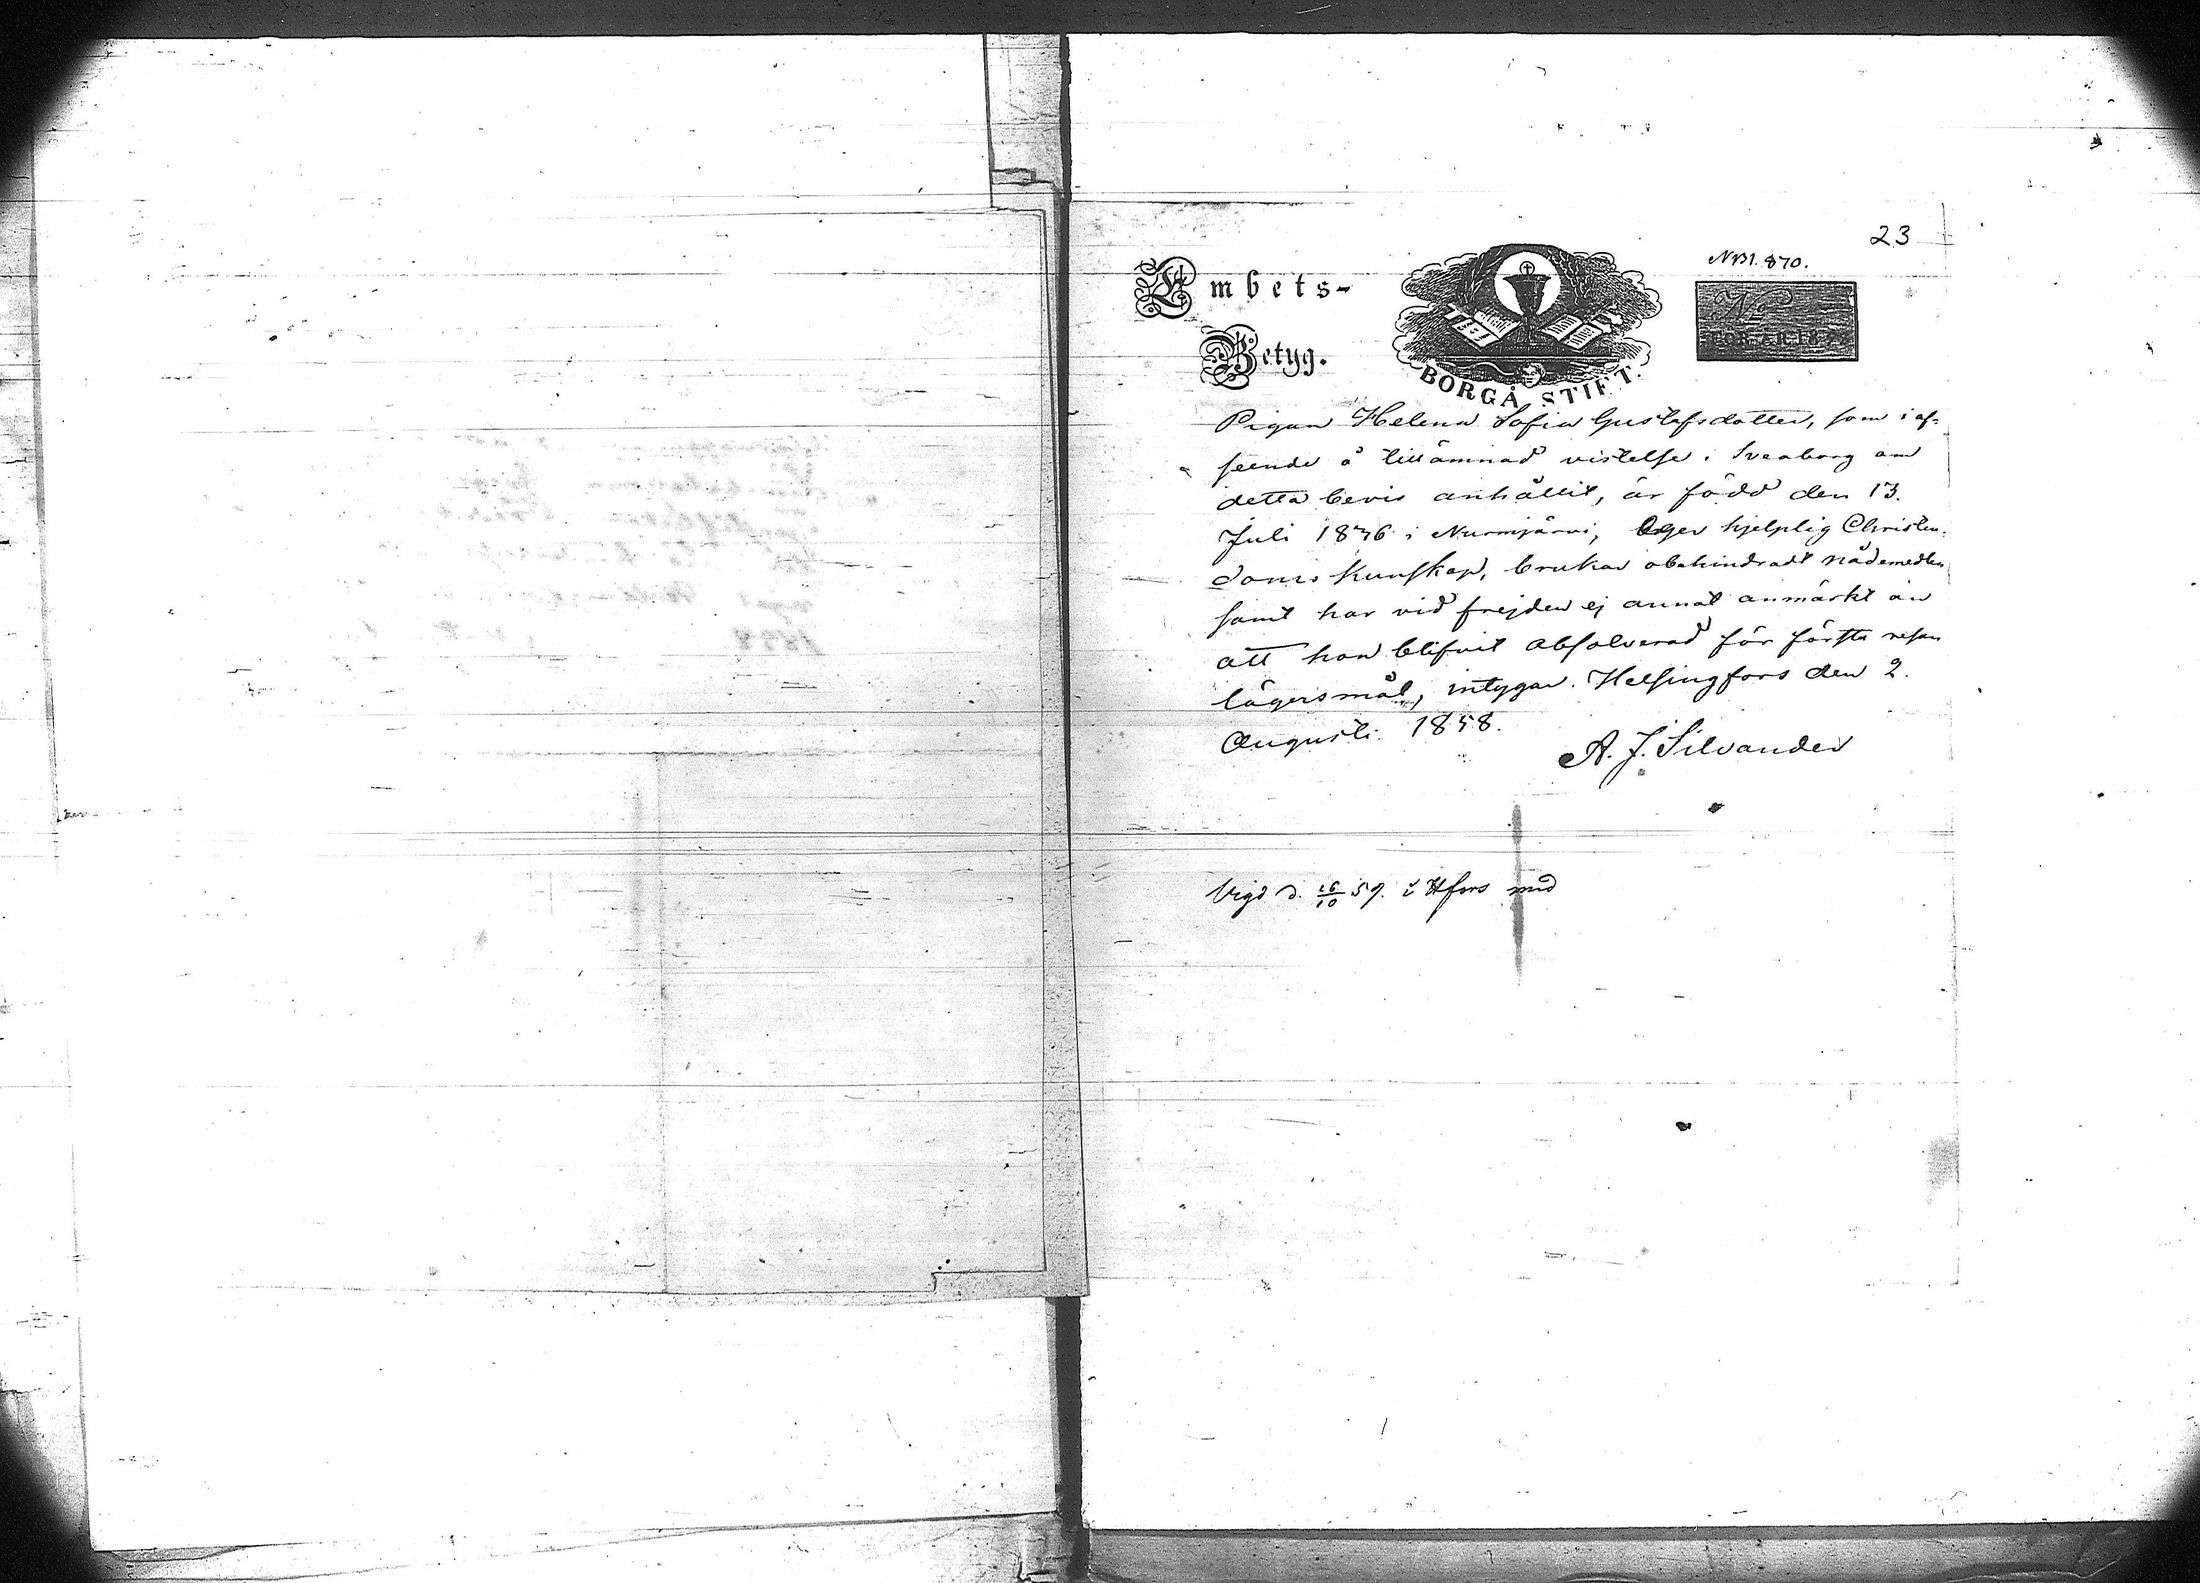 23
NB1. 870.
Embets-
Betyg.
BORGÅ STIFT.
No
FÖR ÅR 18
Pigan Helena Sofia Gustafsdotter, som i af-
seende å tillämnad vistelse i Sveaborg om
detta bevis anhållit, är född den 13.
Juli 1836 i Nurmijärvi, Eger hjelplig Christen-
doms kunskap, brukar obehindradt nådemedlen
samt har vid frejden ej annat anmärkt än
att hon blifvit absolverad för första resan
lägersmål, intygar. Helsingfors den 2.
Augusti 1858.
A. J. Silvander
Vigd d. 16/10 59. i Hfors med